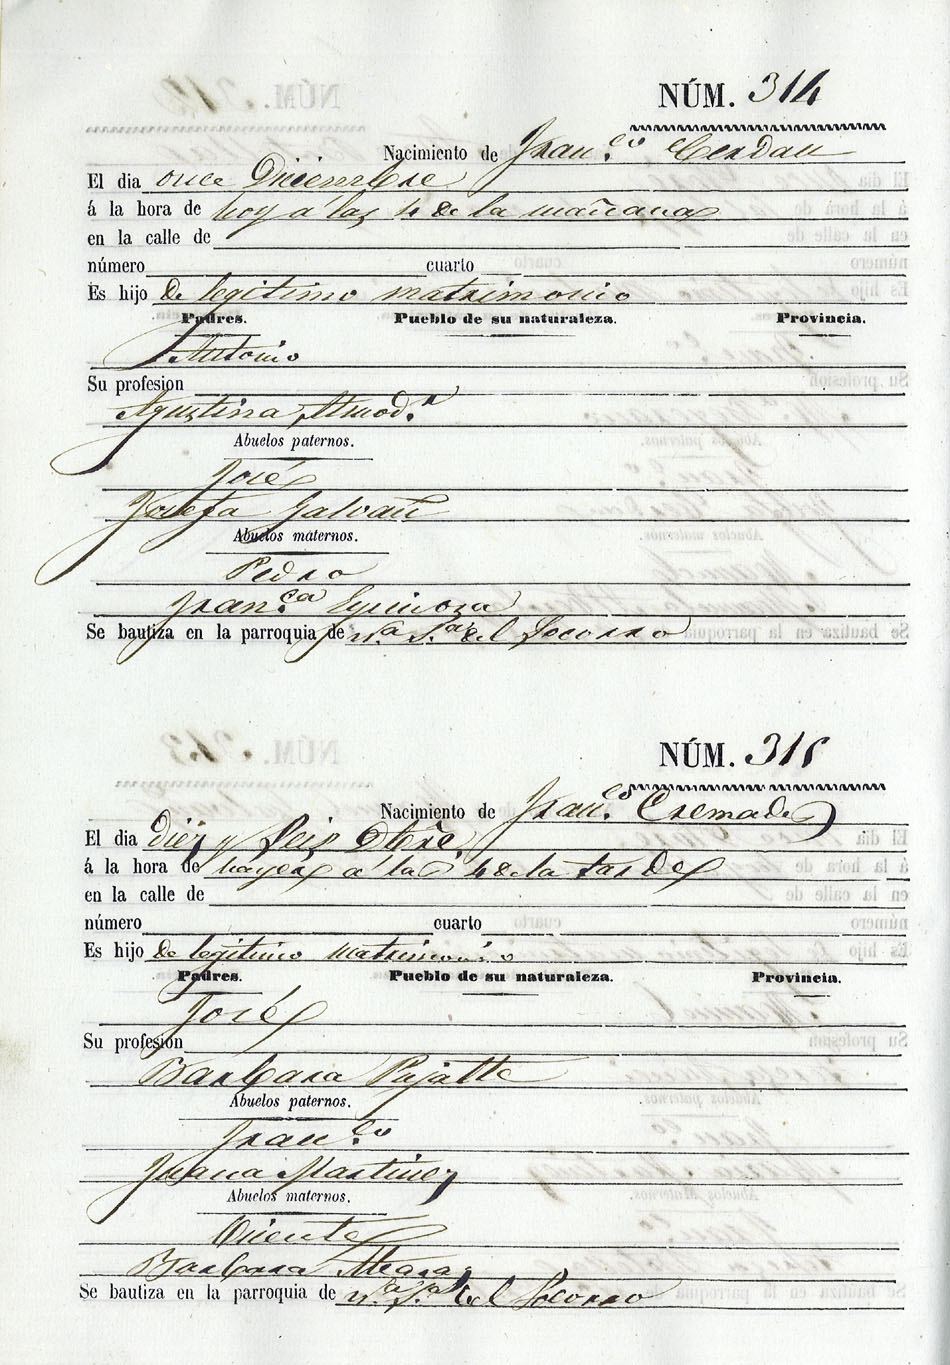 NÚM. 314
Nacimiento de Fran.co Cerdan
El dia once Diciembre
á la hora de hoy a las 4 de la mañana
en la calle de
número cuarto
Es hijo de legitimo matrimonio
Padres. Pueblo de su naturaleza. Provincia.
Antonio
Su profesion
Agustina Almod.r
Abuelos paternos.
José
Josefa Galvañ
Abuelos maternos.
Pedro
Fran.ca Espinosa
Se bautiza en la parroquia de N.a S.a del Socorro
NÚM. 315
Nacimiento de Fran.co Cremades
El dia Diez y Seis Dbre
á la hora de hayer a las 4 de la tarde
en la calle de
número cuarto
Es hijo de legitimo matrimonio
Padres. Pueblo de su naturaleza. Provincia.
José
Su profesion
Barbara
Abuelos paternos.
Fran.co
Juana Martinez
Abuelos maternos.
Vicente
Barbara
Se bautiza en la parroquia de N.a S.a del Socorro